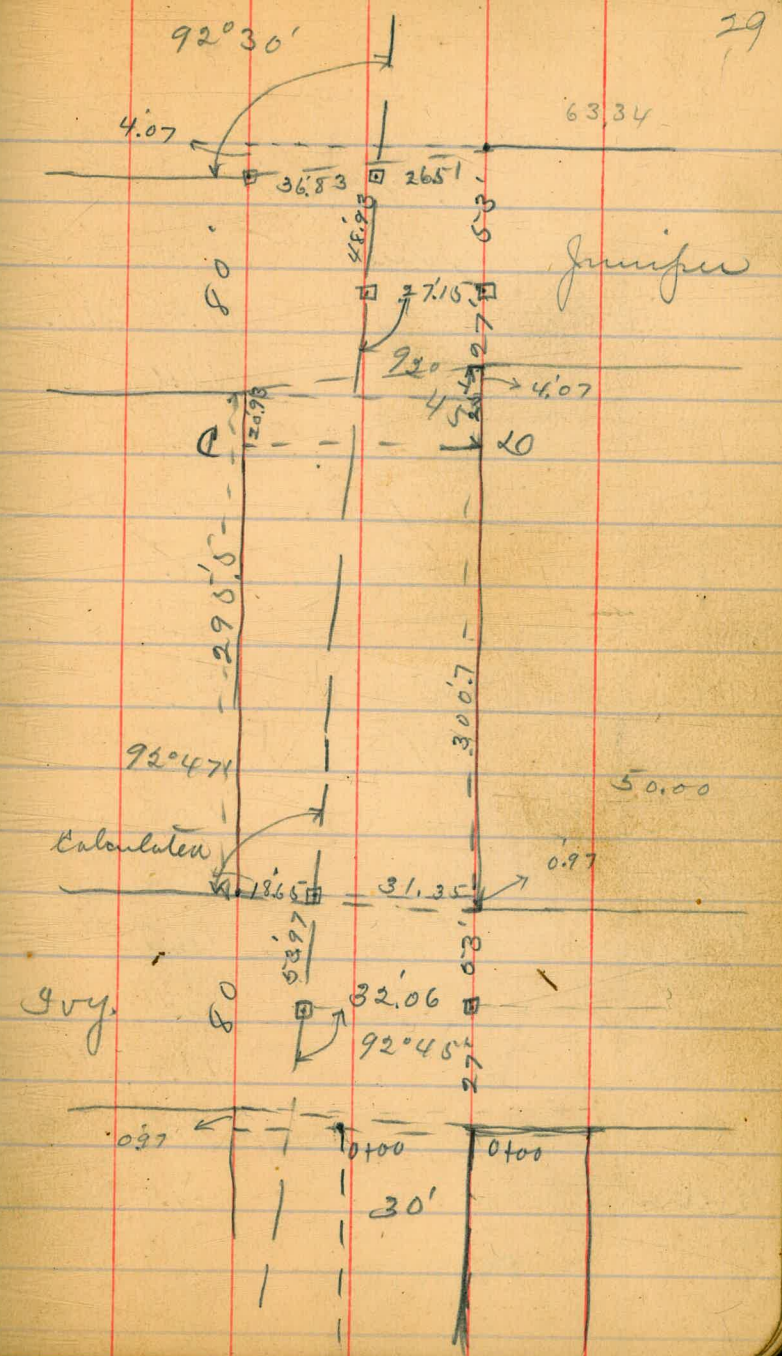 29
92°30'
63.34
4.07
36.83 26.51
53'
80'
Juniper
27.15
27
920
4.07
20.93
C D
295.5
300.7
92°47'
50.00
Calculated
0.97
18.65 31.35
53'
Ivy.
80
32.06
92°45'
27
0.97
0+00 0+00
30'